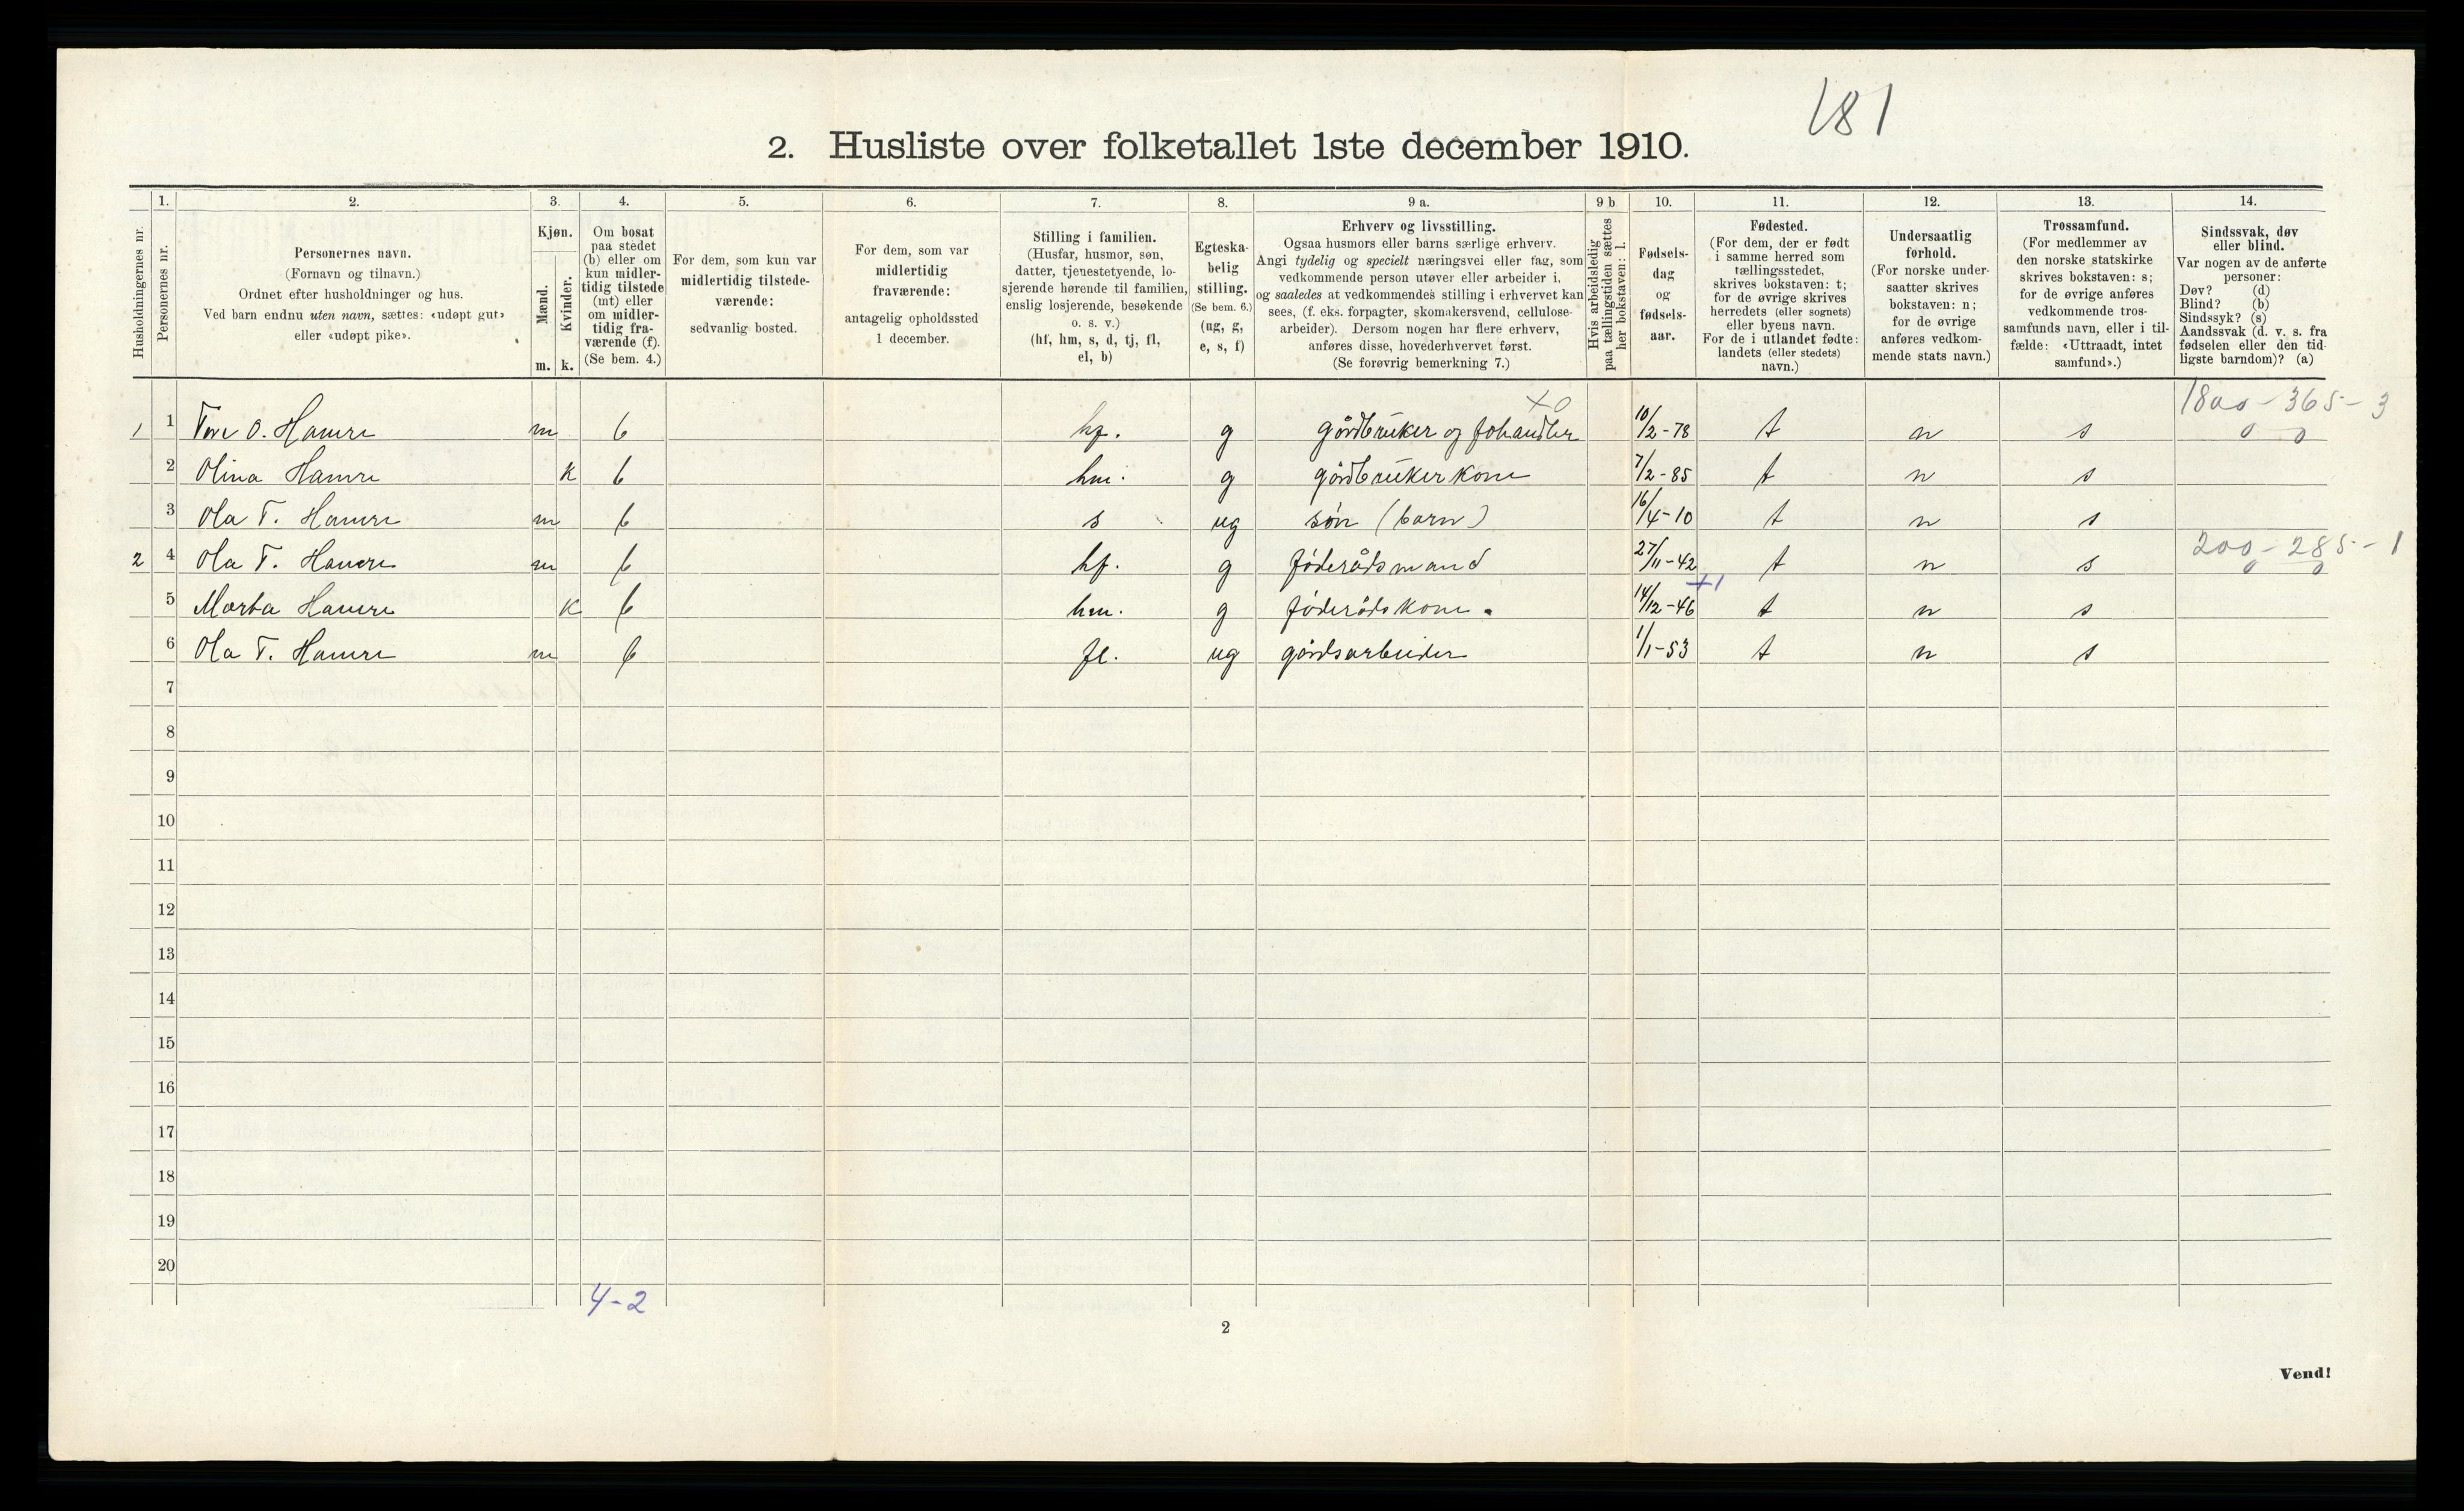 181
2. Husliste over folketallet 1ste december 1910.
Husholdningernes nr.
1.
Personernes nr.
2.
Personernes navn.
(Fornavn og tilnavn.)
Ordnet efter husholdninger og hus.
Ved barn endnu uten navn, sættes: «udøpt gut»
eller «udøpt pike».
3.
Kjøn.
Mænd.
Kvinder.
m. k.
4.
Om bosat
paa stedet
(b) eller om
kun midler-
tidig tilstede
(mt) eller
om midler-
tidig fra-
værende (f).
(Se bem. 4.)
5.
For dem, som kun var
midlertidig tilstede-
værende:
sedvanlig bosted.
6.
For dem, som var
midlertidig
fraværende:
antagelig opholdssted
1 december.
7.
Stilling i familien.
(Husfar, husmor, søn,
datter, tjenestetyende, lo-
sjerende hørende til familien,
enslig losjerende, besøkende
o. s. v.)
(hf, hm, s, d, tj, fl,
el, b)
8.
Egteska-
belig
stilling.
(Se bem. 6.)
(ug, g,
e, s, f)
9 a.
Erhverv og livsstilling.
Ogsaa husmors eller barns særlige erhverv.
Angi tydelig og specielt næringsvei eller fag, som
vedkommende person utøver eller arbeider i,
og saaledes at vedkommendes stilling i erhvervet kan
sees, (f. eks. forpagter, skomakersvend, cellulose-
arbeider). Dersom nogen har flere erhverv,
anføres disse, hovederhvervet først.
(Se forøvrig bemerkning 7.)
9 b
Hvis arbeidsledig
paa tællingstiden sættes
her bokstaven: l.
10.
Fødsels-
dag
og
fødsels-
aar.
11.
Fødested.
(For dem, der er født
i samme herred som
tællingsstedet,
skrives bokstaven: t;
for de øvrige skrives
herredets (eller sognets)
eller byens navn.
For de i utlandet fødte:
landets (eller stedets)
navn.)
12.
Undersaatlig
forhold.
(For norske under-
saatter skrives
bokstaven: n;
for de øvrige
anføres vedkom-
mende stats navn.)
13.
Trossamfund.
(For medlemmer av
den norske statskirke
skrives bokstaven: s;
for de øvrige anføres
vedkommende tros-
samfunds navn, eller i til-
fælde: «Uttraadt, intet
samfund».)
14.
Sindssvak, døv
eller blind.
Var nogen av de anførte
personer:
Døv? (d)
Blind? (b)
Sindssyk? (s)
Aandssvak (d. v. s. fra
fødselen eller den tid-
ligste barndom)? (a)
X0 1800 - 365 - 3
1 1 Tore O. Hamre m b hf. g gårdbruker og fehandler 10/2-78 t n s 0 0
2 Olina Hamre k b hm. g gårdbrukerkone 7/2-85 t n s
3 Ola T. Hamre m b s ug søn (barn) 16/4-10 t n s
200 - 285 - 1
2 4 Ola T. Hamre m b hf. g føderådsmand 27/11-42 t n s 0 0
+1
5 Marta Hamre k b hm. g føderådskone. 14/12-46 t n s
6 Ola T. Hamre m b fl. ug gårdsarbeider 1/1-53 t n s
7
8
9
10
11
12
13
14
15
16
17
18
19
20
4-2
2
Vend!